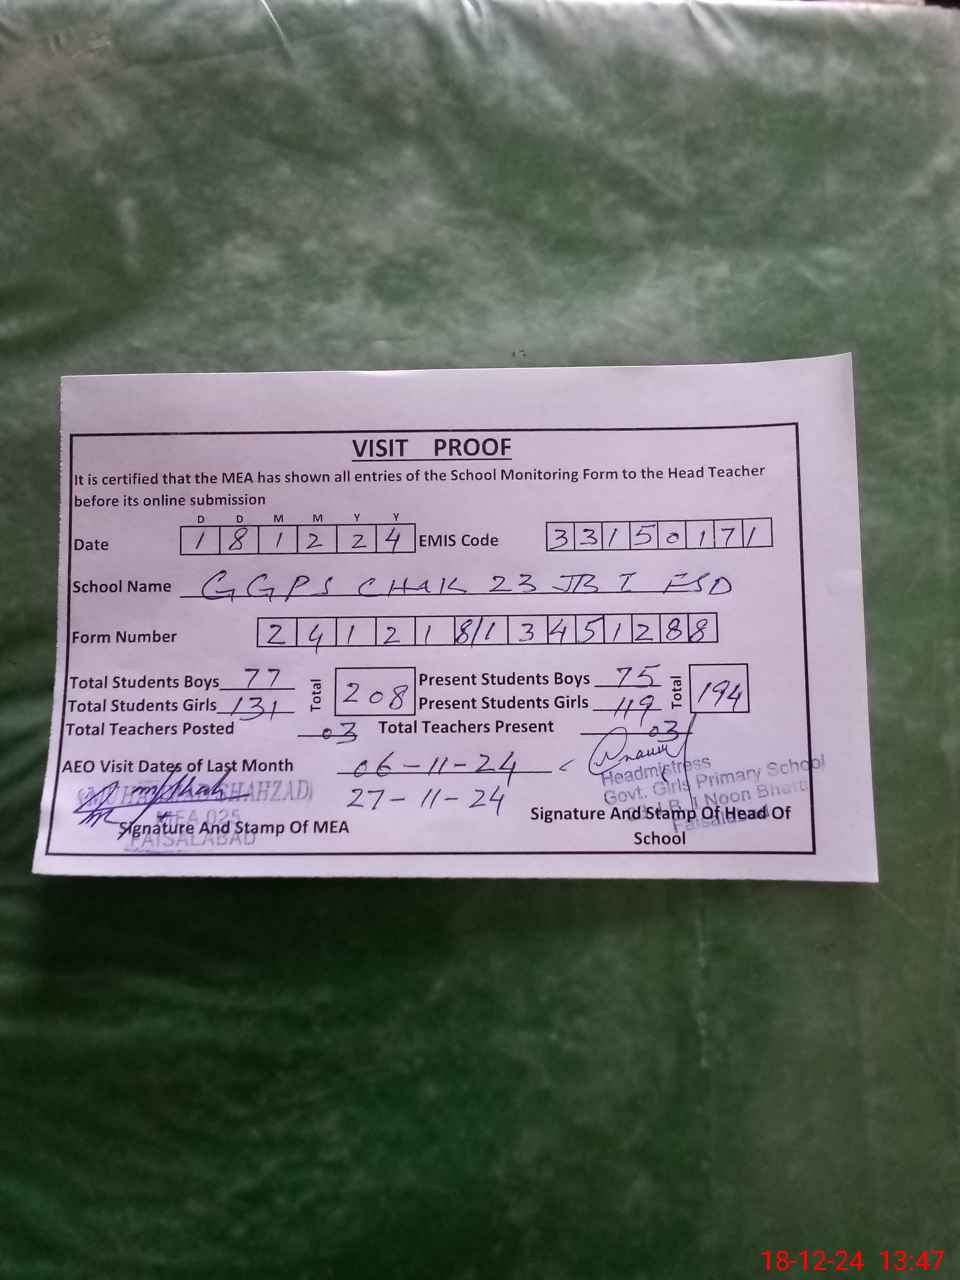 VISIT PROOF
It is certified that the MEA has shown all entries of the School Monitoring Form to the Head Teacher
before its online submission
D D M M Y Y
Date 1 8 1 2 2 4 EMIS Code 3 3 1 5 0 1 7 1
School Name GGPS CHAK 23 JB I FSD
Form Number 2 4 1 2 1 8/1 3 4 5 1 2 8 8
Total Students Boys 77 Total 208 Present Students Boys 75 Total 194
Total Students Girls 131 Present Students Girls 119
Total Teachers Posted 03 Total Teachers Present 03
AEO Visit Dates of Last Month 06-11-24
27-11-24
SHAHZAD
MEA 025
FAISALABAD
Signature And Stamp Of MEA
Headmistress
Govt. Girls Primary School
J.B. I Noon
Faisalabad
Signature And Stamp Of Head Of
School
18-12-24 13:47